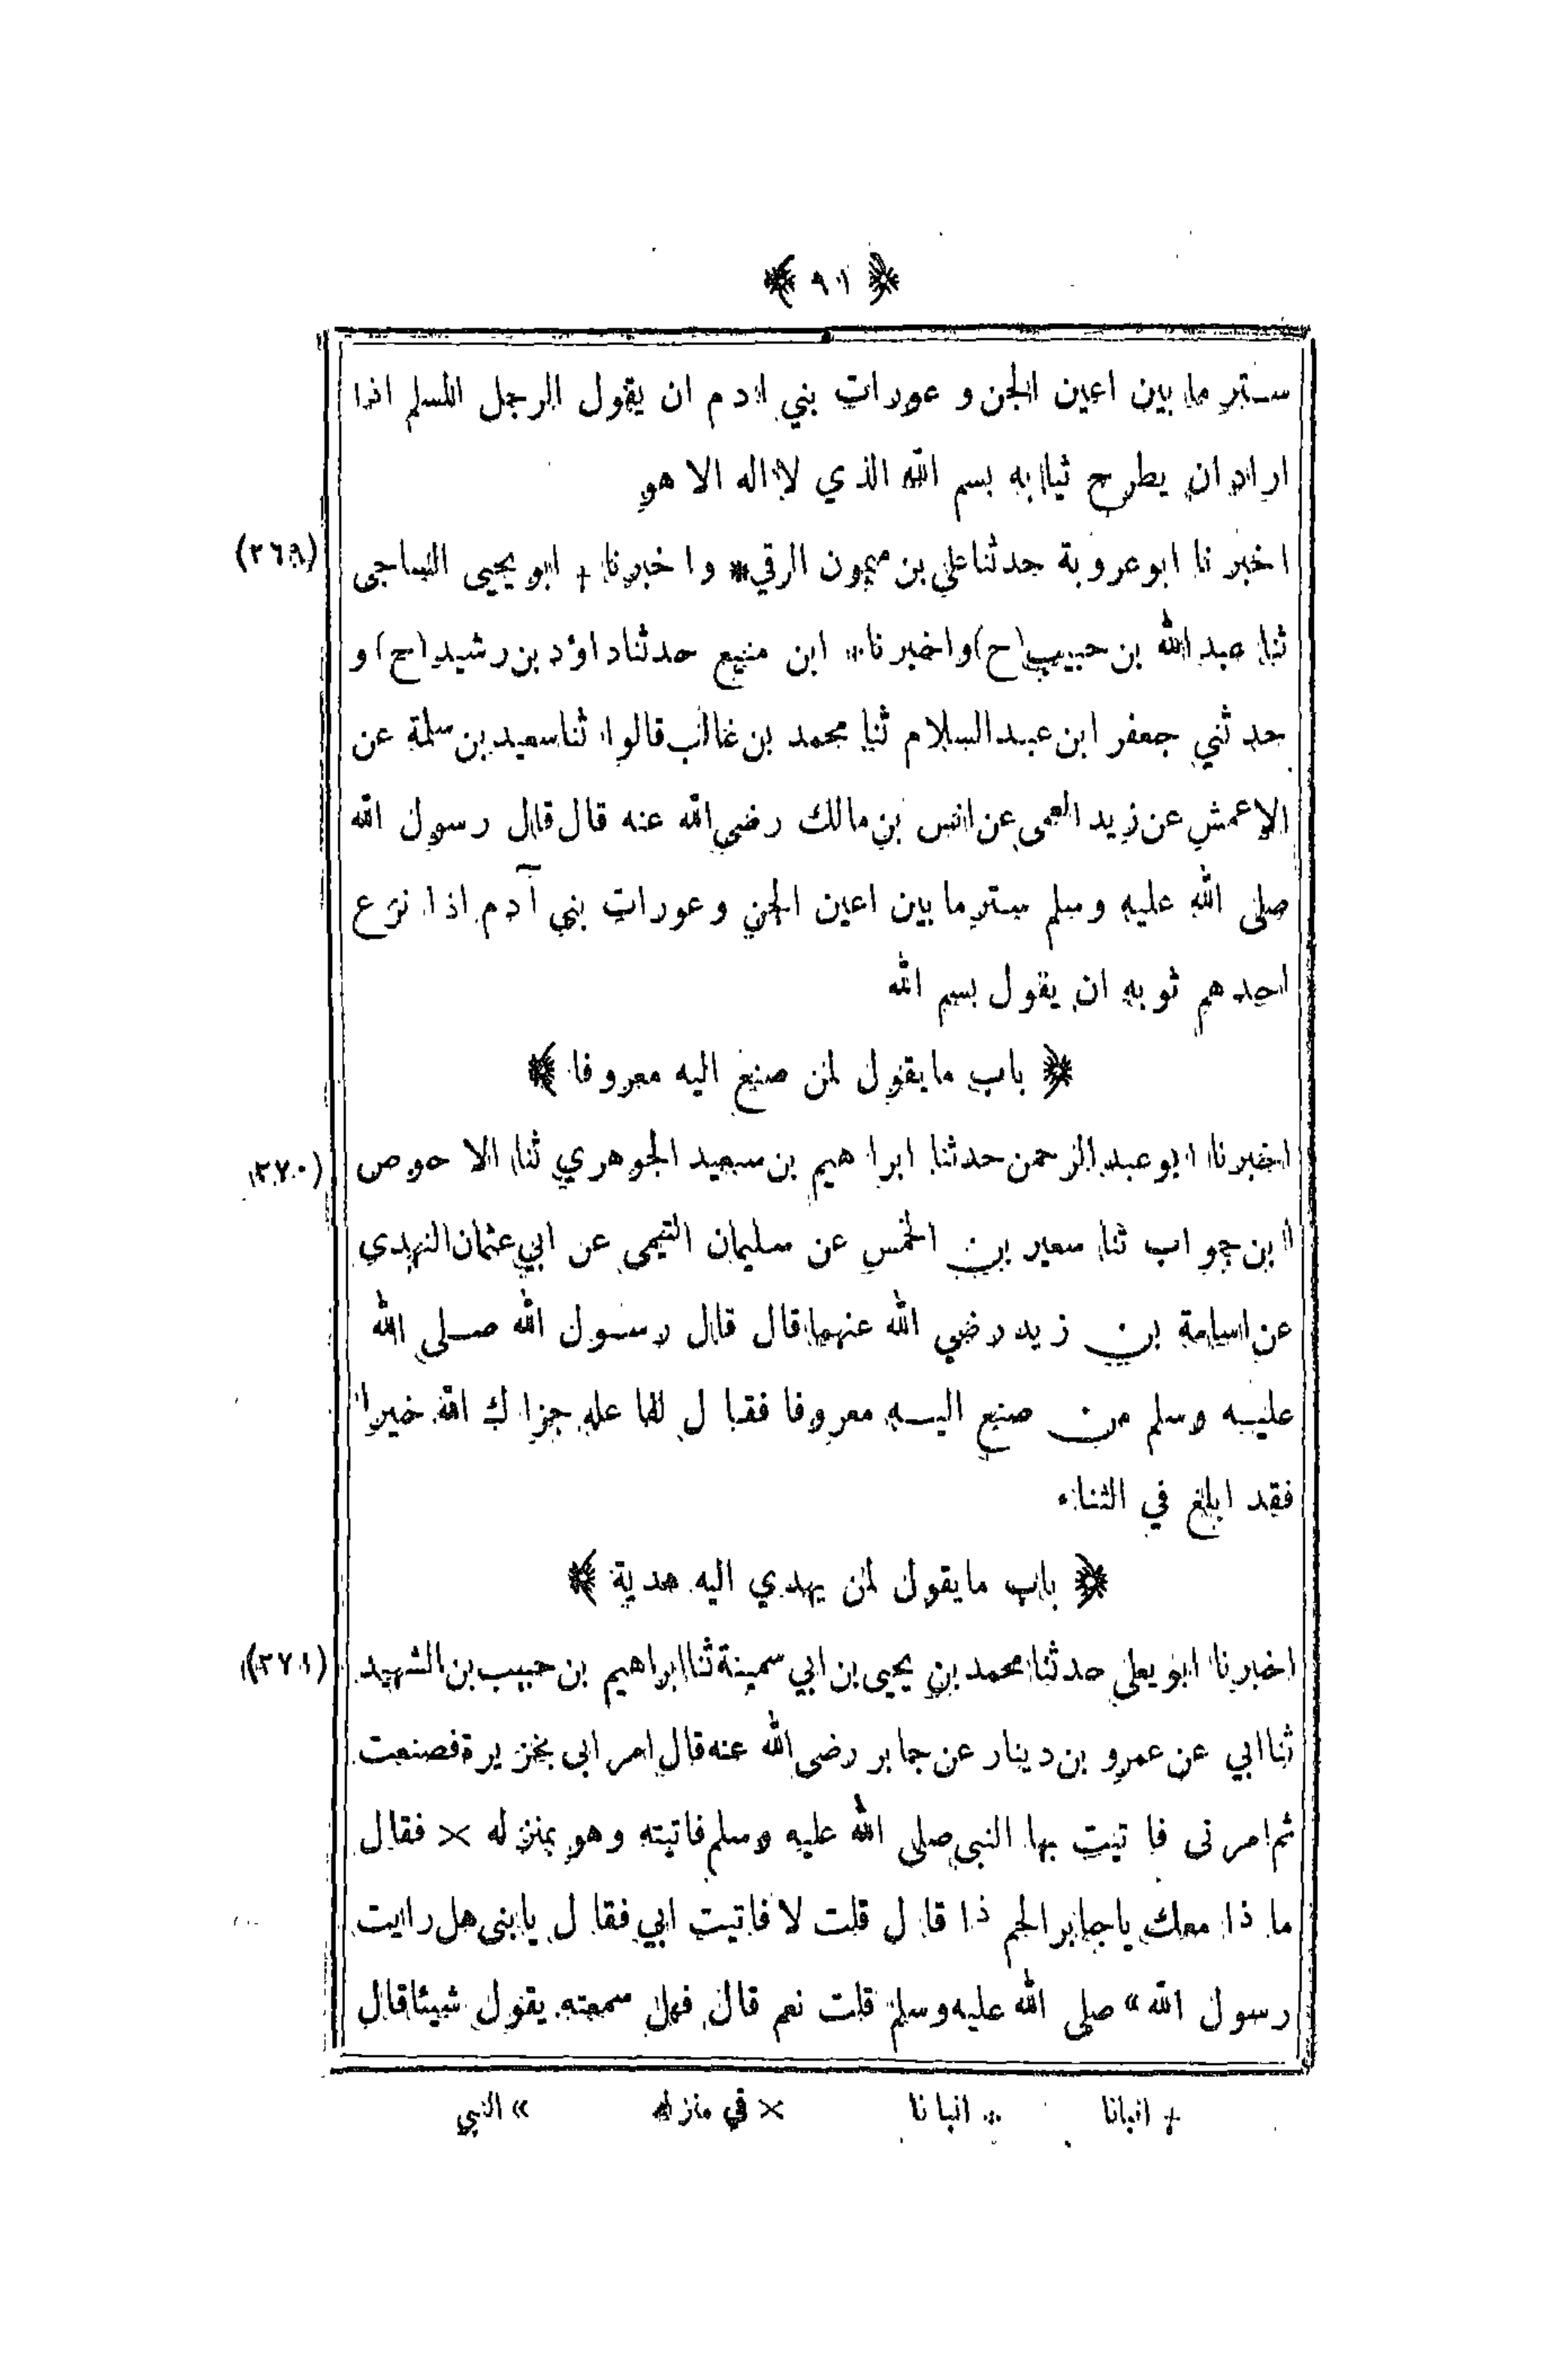 ﴿ ٩١ ﴾
ستر ما بين اعين الجن و عورات بني ادم ان يقول الرجل المسلم اذا
اراد ان يطرح ثيابه بسم الله الذي لا اله الا هو
اخبرنا ابو عروبة حدثنا علي بن ميمون الرقي * واخبرنا + ابو يحيى الساجى (٢٦٩)
ثنا عبد الله بن حبيب (ح) واخبرنا ** ابن منيع حدثنا داؤد بن رشيد (ح) و
حدثني جعفر ابن عبد السلام ثنا محمد بن غالب قالوا ثنا سعيد بن سلمة عن
الاعمش عن زيد العمى عن انس بن مالك رضى الله عنه قال قال رسول الله
صلى الله عليه وسلم ستر ما بين اعين الجن وعورات بني آدم اذا نزع
احدهم ثوبه ان يقول بسم الله
﴿ باب ما يقول لمن صنع اليه معروفا ﴾
اخبرنا ابو عبد الرحمن حدثنا ابراهيم بن سعيد الجوهري ثنا الاحوص (٢٧٠)
ابن جواب ثنا سعير بن الخمس عن سليمان التيمى عن ابي عثمان النهدى
عن اسامة بن زيد رضي الله عنهما قال قال رسول الله صلى الله
عليه وسلم من صنع اليه معروفا فقال لفاعله جزاك الله خيرا
فقد ابلغ في الثناء
﴿ باب ما يقول لمن يهدي اليه هدية ﴾
اخبرنا ابو يعلى حدثنا محمد بن يحيى بن ابي سمينة ثنا ابراهيم بن حبيب بن الشهيد (٢٧١)
ثنا ابي عن عمرو بن دينار عن جابر رضى الله عنه قال امر ابى بخزيرة فصنعت
ثم امرنى فاتيت بها النبى صلى الله عليه وسلم فاتيته وهو بمنزله × فقال
ما ذا معك يا جابر الحم ذا قال قلت لا فاتيت ابي فقال يا بنى هل رايت
رسول الله » صلى الله عليه وسلم قلت نعم قال فهل سمعته يقول شيئا قال
+ انبانا ** انبانا × في منزله » النبي